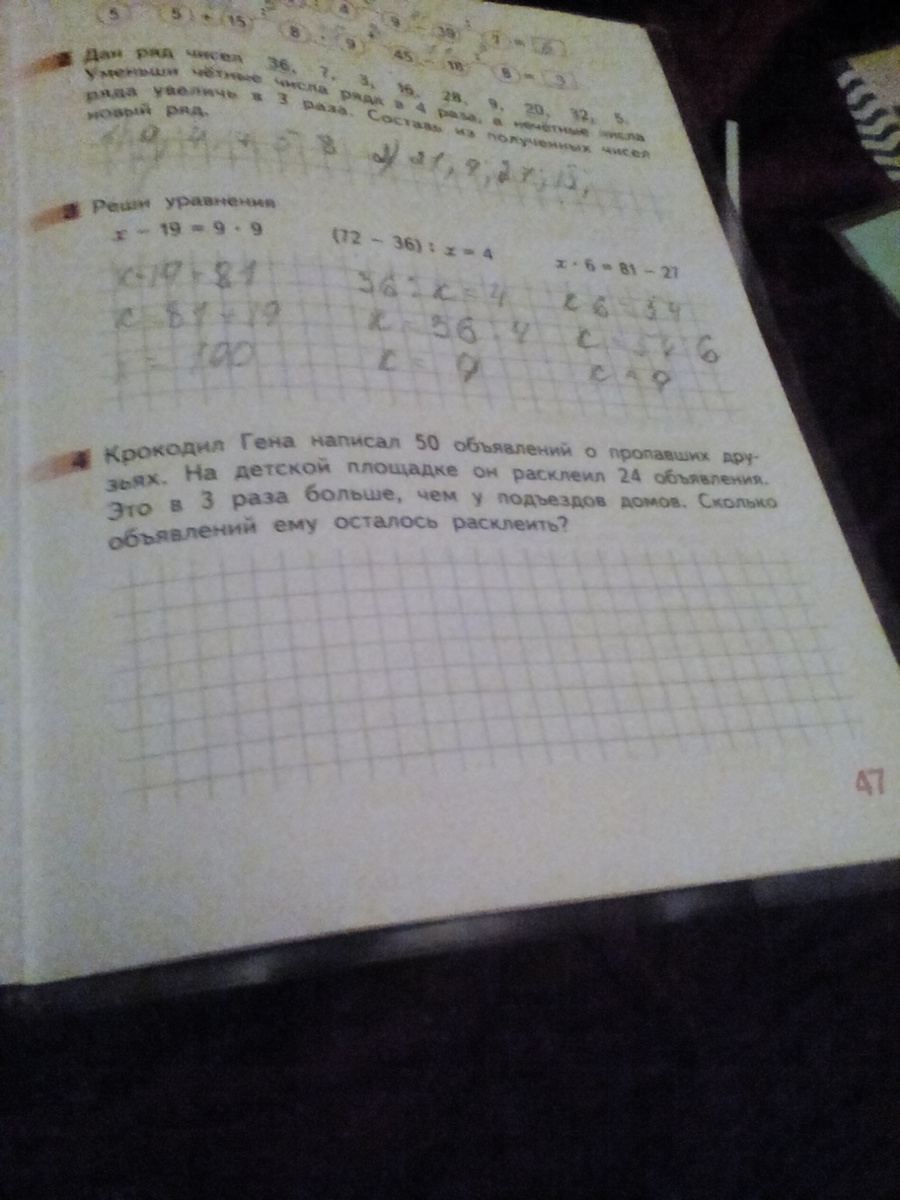 5 5 + 15 4 9 39 7 = 6
8 9 45 - 18 8 = 9
2 Дан ряд чисел 36, 7, 3, 16, 28, 9, 20, 32, 5.
Уменьши чётные числа ряда в 4 раза, а нечётные числа
ряда увеличь в 3 раза. Составь из полученных чисел
новый ряд.
9, 4, 7, 5 8 2) 21, 9, 27, 15,
3 Реши уравнения
x − 19 = 9 · 9 (72 − 36) : x = 4 x · 6 = 81 − 27
x-19=81 36:x=4 x 6=54
x=81+19 x=36:4 x=54:6
= 100 x=9 x=9
4 Крокодил Гена написал 50 объявлений о пропавших дру-
зьях. На детской площадке он расклеил 24 объявления.
Это в 3 раза больше, чем у подъездов домов. Сколько
объявлений ему осталось расклеить?
47